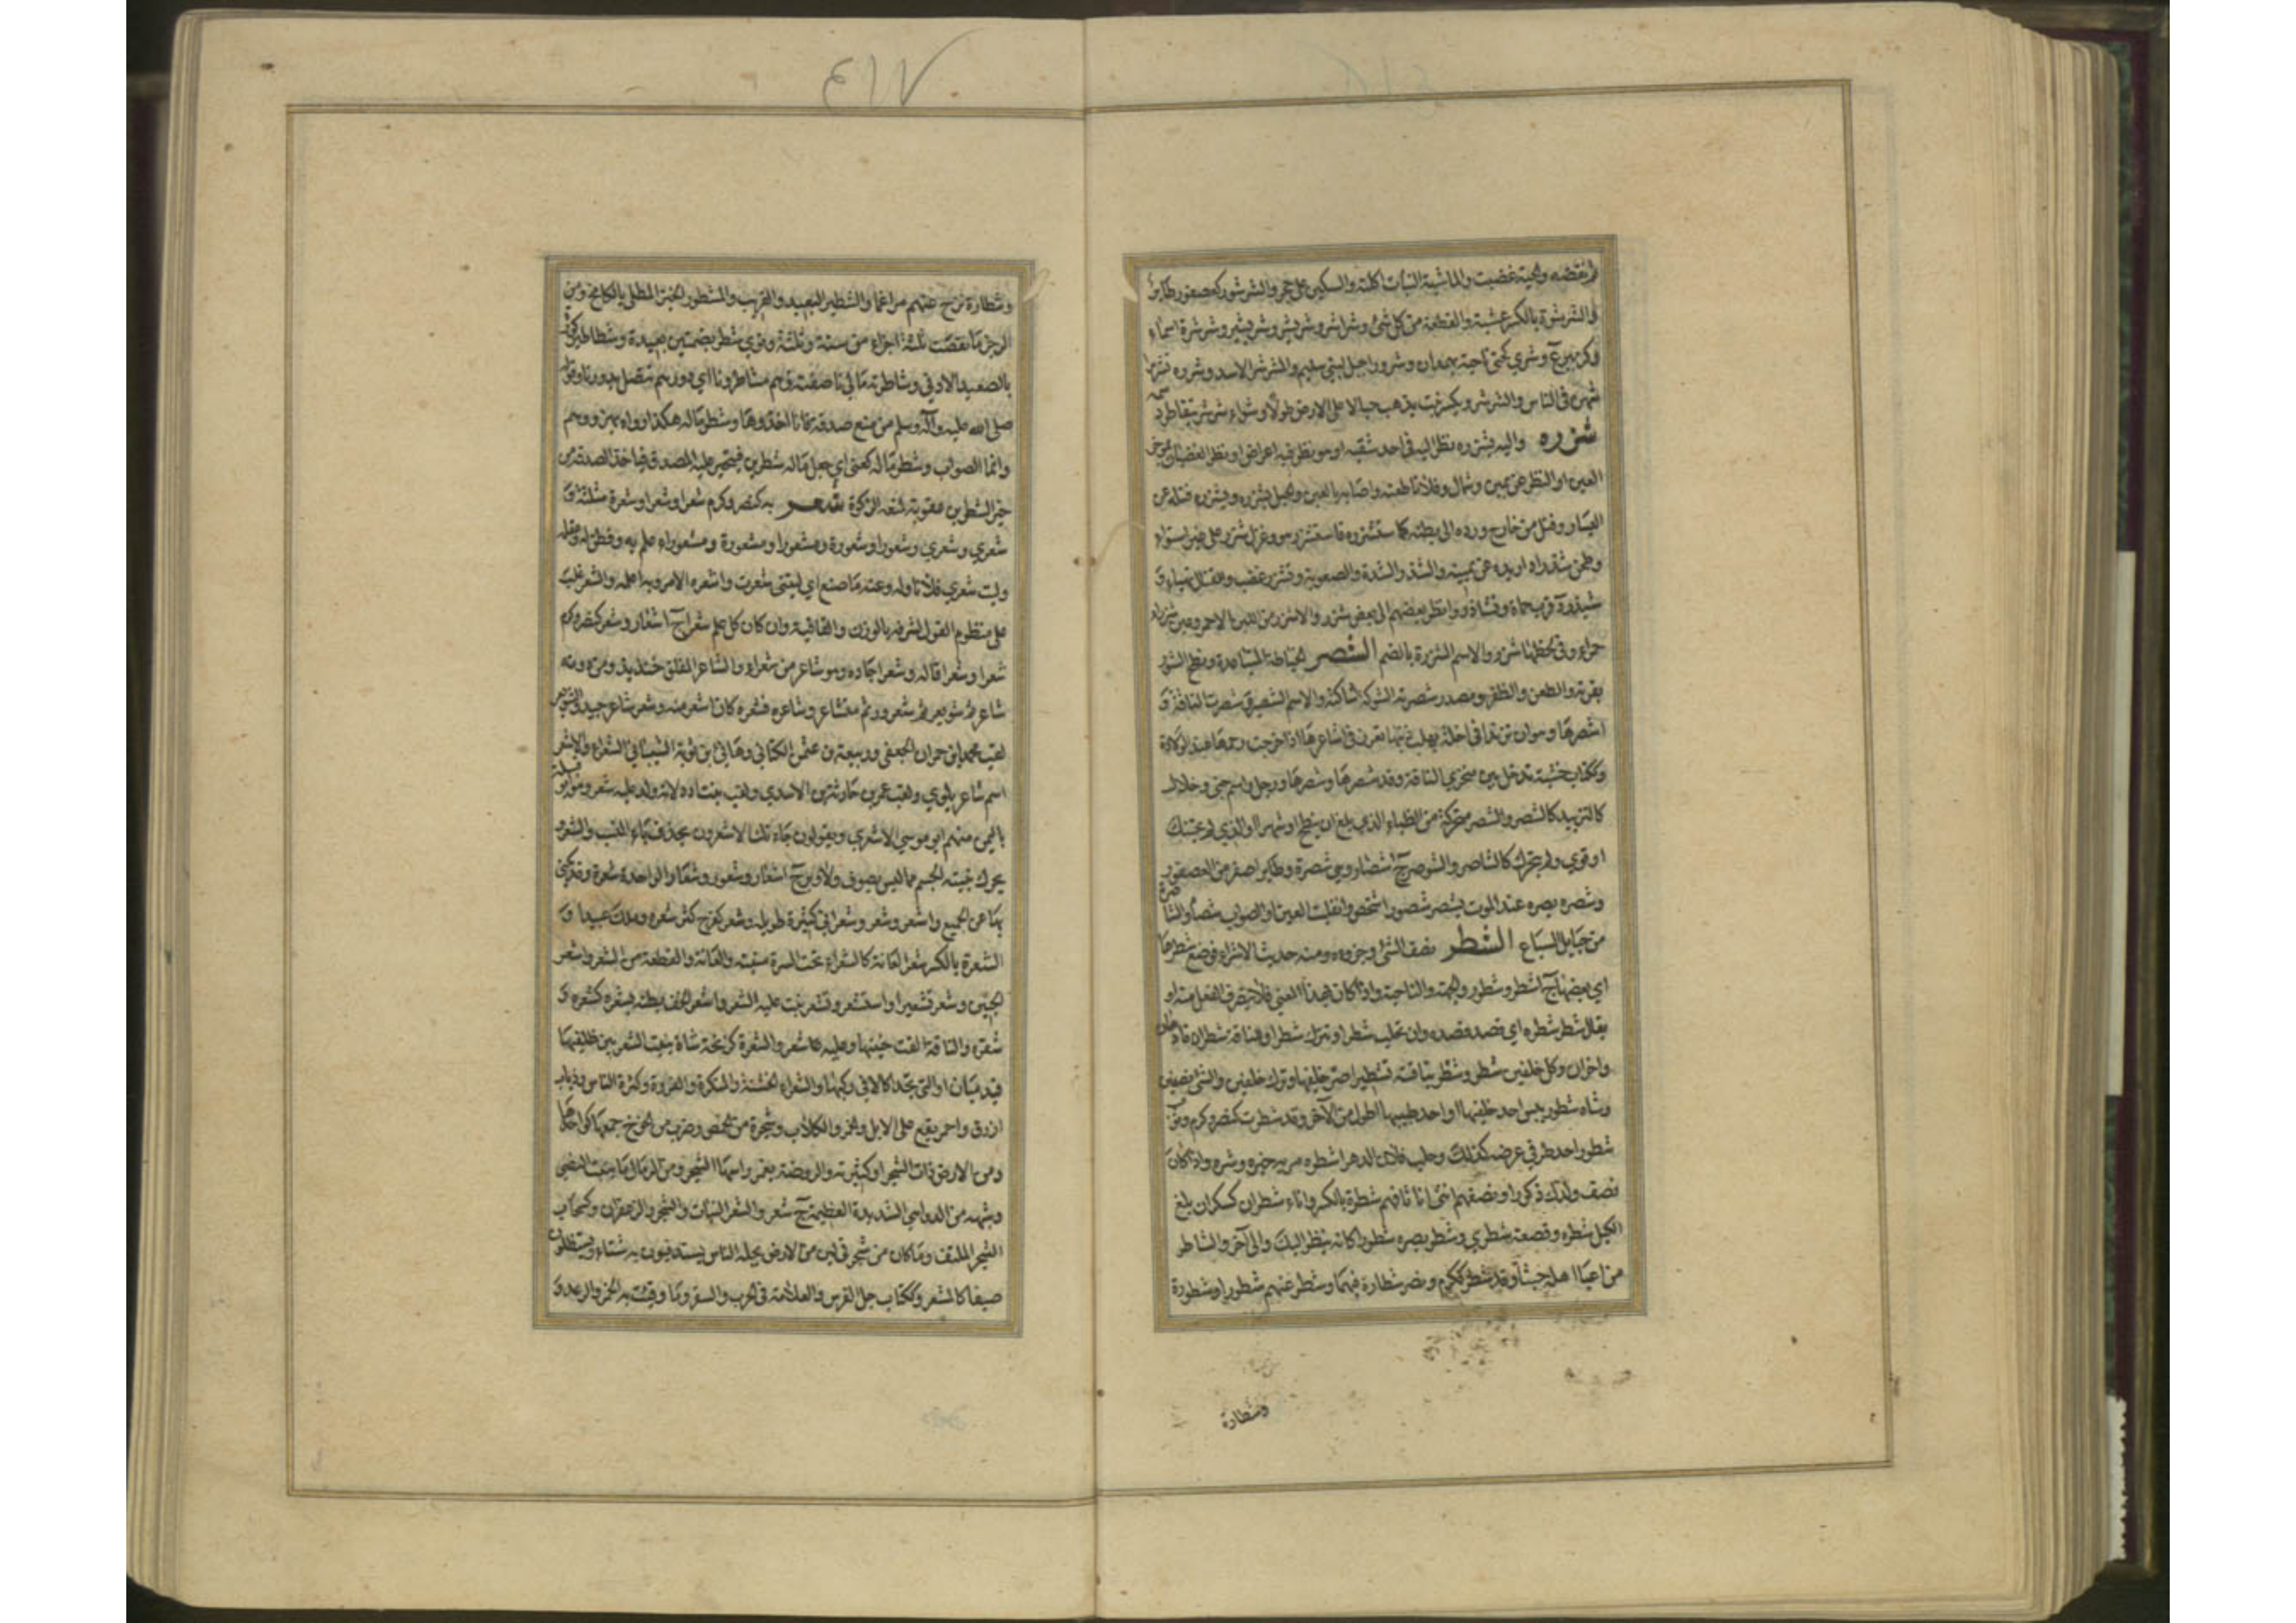 ثم نقضه والحية عضت والماشية النبات اكلته والسكين على حجر والشرشور كعصفور طائر
والشرشرة بالكسر عشبة والقطعة من كل شئ وشراشر وشريشر وشرشرة اسماء
وشرى كحتى ناحية بهمدان وشرور اجبل لبنى سليم والمشرشر الاسد وشرره تشريرا
شهره في الناس والشرشر ويكسر نبت يذهب حبالا على الارض طولا وشواء شرشر يتقاطر دسمه
شزره واليه يشزره نظر اليه في احد شقيه او هو نظر فيه اعراض او نظر الغضبان بمؤخر
العين او النظر عن يمين وشمال وفلانا طعنه واصابه بالعين والحبل يشزره ويشزره فتله عن
اليسار وفتل من خارج ورده الى بطنه كاستشزره فاستشزر هو وغزل شزر على غير استواء
وطحن شزرا ادار يده عن يمينه والشزر الشدة والصعوبة وتشزر غضب وللقتال تهيأ و
شيزر د قرب حماة وتشازروا نظر بعضهم الى بعض شزرا والاشزر من اللبن الاحمر وعين شزراء
حمراء وفي لحظها شزر والاسم الشزرة بالضم الشصر الخياطة المتباعدة ونطح الثور
بقرنه والطعن والظفر ومصدر شصرته الشوكة شاكته والاسم الشصيرة وشصرت الناقة و
اشصرها وهو ان تزند في اخلة بهلب ذنبها تغرز في اشاعرها اذا خرجت رحمها عند الولادة
وككتاب خشبة تدخل بين منخري الناقة وقد شصرها وشصرها ورجل واسم جني وخلال
كالتزنيد كالشصر والشصر محركة من الظباء الذي بلغ ان ينطح او شهرا او الذي لم يحتنك
او قوي ولم يتحرك كالشاصر والشوصر ج اشصار وهي شصرة وطائر اصغر من العصفور
وشصر بصره عند الموت يشصر شصورا شخص وانقلبت العين او الصواب شصا والشاصرة
من حبايل السباع الشطر نصف الشئ وجزؤه ومنه حديث الاسراء فوضع شطرها
اي بعضها ج اشطر وشطور والجهة والناحية واذا كان بهذا المعنى فلا يتصرف الفعل منه او
يقال شطر شطره اي قصد قصده وان تحلب شطرا وتترك شطرا وللناقة شطران قادمان
واخران وكل خلفين شطر وشطر بناقته تشطيرا صر خلفيها وترك خلفين والشئ نصفه
وشاة شطور يبس احد خلفيها او احد طبييها اطول من الآخر وقد شطرت كنصر وكرم وثوب
شطور احد طرفي عرضه كذلك وحلب فلان الدهر اشطره مر به خيره وشره واذا كان
نصف ولدك ذكورا ونصفهم اناثا فهم شطرة بالكسر واناء شطران كسكران بلغ
الكيل شطره وقصعة شطرى وشطر بصره شطورا كانه ينظر اليك والى آخر والشاطر
من اعيا اهله خبثا وقد شطر ككرم ونصر شطارة فيهما وشطر عنهم شطورا وشطورة
وشطارة
٤١٧
وشطارة نزح عنهم مراغما والشطير البعيد والغريب والمشطور الخبز المطلي بالكامخ ومن
الرجز ما نقصت ثلثة اجزاء من ستة ونوى شطر بضمتين بعيدة وشطاطير كورة
بالصعيد الادنى وشاطرته مالى ناصفته وهم مشاطرونا اي دورهم تتصل بدورنا وقوله
صلى الله عليه وآله وسلم من منع صدقة فانا آخذوها وشطر ماله هكذا رواه بهز ووهم
وانما الصواب وشطر ماله كعني اي جعل ماله شطرين فيتخير عليه المصدق فياخذ الصدقة من
خير الشطرين عقوبة لمنعه الزكوة شعر به كنصر وكرم شعرا وشعرا وشعرة مثلثة و
شعرى وشعرى وشعورا وشعورة ومشعورا ومشعورة ومشعوراء علم به وفطن له وعقله
وليت شعري فلانا وله وعنه ما صنع اي ليتني شعرت واشعره الامر وبه اعلمه والشعر غلب
على منظوم القول لشرفه بالوزن والقافية وان كان كل علم شعرا ج اشعار وشعر كنصر وكرم
شعرا وشعرا قاله وشعر اجاده وهو شاعر من شعراء والشاعر المفلق خنذيذ ومن دونه
شاعر ثم شويعر ثم شعرور ثم متشاعر وشاعره فشعره كان اشعر منه وشعر شاعر جيد والشويعر
لقب محمد بن حمران الجعفي وربيعة بن عثمن الكناني وهاني بن توبة الشيباني الشعراء والاشعر
اسم شاعر بلوي ولقب عمرو بن حارثة الاسدي ولقب نبت بن ادد لانه ولد عليه شعر وهو ابو قبيلة
باليمن منهم ابو موسى الاشعري ويقولون جاءتك الاشعرون بحذف ياء النسب والشعر و
يحرك نبتة الجسم مما ليس بصوف ولا وبر ج اشعار وشعور وشعار الواحدة شعرة وقد يكنى
بها عن الجميع واشعر وشعر وشعراني كثيره طويله وشعر كفرح كثر شعره وملك عبيدا و
الشعرة بالكسر شعر العانة كالشعراء تحت السرة منبته والعانة والقطعة من الشعر واشعر
الجنين وشعر تشعيرا واستشعر وتشعر نبت عليه الشعر واشعر الخف بطنه بشعر كشعره و
شعره والناقة القت جنينها وعليه شعر والشعرة كزنخة شاة ينبت الشعر بين ظلفيها
فيدميان او التي تجد اكالا في ركبها والشعراء الخشنة والمنكرة والفروة وكثرة الناس وذباب
ازرق واحمر يقع على الابل والحمر والكلاب وشجرة من الحمض وضرب من الخوخ جمعهما كواحدهما
ومن الارض ذات الشجر او كثيرته والروضة يغمر راسها الشجر ومن الرمال ما ينبت النصي
وشبهه من الدواهي الشديدة العظيمة ج شعر والشعر النبات والشجر والزعفران وكسحاب
الشجر الملتف وما كان من شجر في لين من الارض يحله الناس يستدفئون به شتاء ويستظلون
صيفا كالمشعر وككتاب جل الفرس والعلامة في الحرب والسفر وما وقيت به الخمر والرعد و